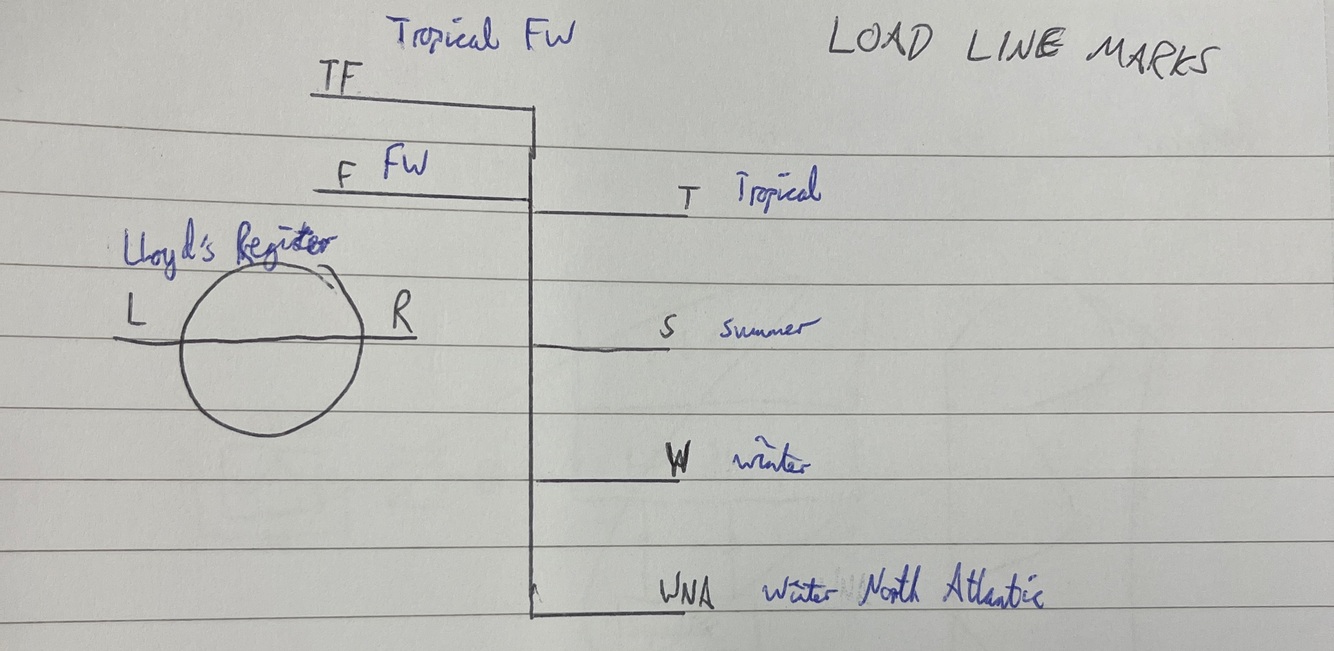 Tropical FW
LOAD LINE MARKS
TF
F FW
T Tropical
Lloyd's Register
L R
S Summer
W Winter
WNA Winter North Atlantic